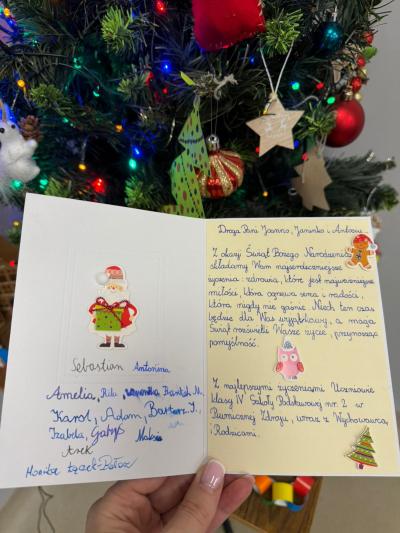 Sebastian Antonina
Amelia, Rita, Weronika Bartek M.
Karol, Adam, Bartosz J.,
Izabela, Gabryś
Arek Maks
Monika
Droga Pani Joanno, Janinko i Antosiu
Z okazji Świąt Bożego Narodzenia
składamy Wam najserdeczniejsze
życzenia: zdrowia, które jest najważniejsze
miłości, która ogrzewa serca i radości,
która nigdy nie gaśnie. Niech ten czas
będzie dla Was wyjątkowy, a magia
Świąt rozświetli Wasze życie, przynosząc
pomyślność.
Z najlepszymi życzeniami Uczniowie
klasy IV Szkoły Podstawowej nr. 2 w
Piwnicznej Zdroju, wraz z Wychowawcą
i Rodzicami.